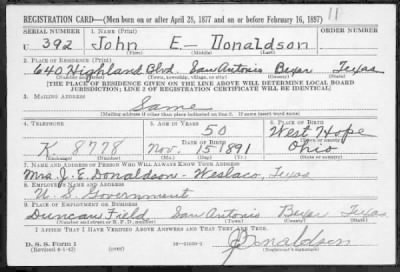 REGISTRATION CARD—(Men born on or after April 28, 1877 and on or before February 16, 1897) 11
SERIAL NUMBER 1. NAME (Print) ORDER NUMBER
U 392 John E.- Donaldson
(First) (Middle) (Last)
2. PLACE OF RESIDENCE (Print)
640 Highland Blvd. San Antonio Bexar Texas
(Number and street) (Town, township, village, or city) (County) (State)
[THE PLACE OF RESIDENCE GIVEN ON THE LINE ABOVE WILL DETERMINE LOCAL BOARD
JURISDICTION; LINE 2 OF REGISTRATION CERTIFICATE WILL BE IDENTICAL]
3. MAILING ADDRESS
Same
[Mailing address if other than place indicated on line 2. If same insert word same]
4. TELEPHONE 5. AGE IN YEARS 6. PLACE OF BIRTH
50 West Hope
DATE OF BIRTH (Town or county)
K 8778 Nov. 15 1891 Ohio
(Exchange) (Number) (Mo.) (Day) (Yr.) (State or country)
7. NAME AND ADDRESS OF PERSON WHO WILL ALWAYS KNOW YOUR ADDRESS
Mrs. J. E. Donaldson - Weslaco, Texas
8. EMPLOYER'S NAME AND ADDRESS
U. S. Government
9. PLACE OF EMPLOYMENT OR BUSINESS
Duncan Field San Antonio Bexar Texas
(Number and street or R. F. D. number) (Town) (County) (State)
I AFFIRM THAT I HAVE VERIFIED ABOVE ANSWERS AND THAT THEY ARE TRUE.
D. S. S. Form 1
(Revised 4-1-42) (over) Donaldson
(Registrant's signature)